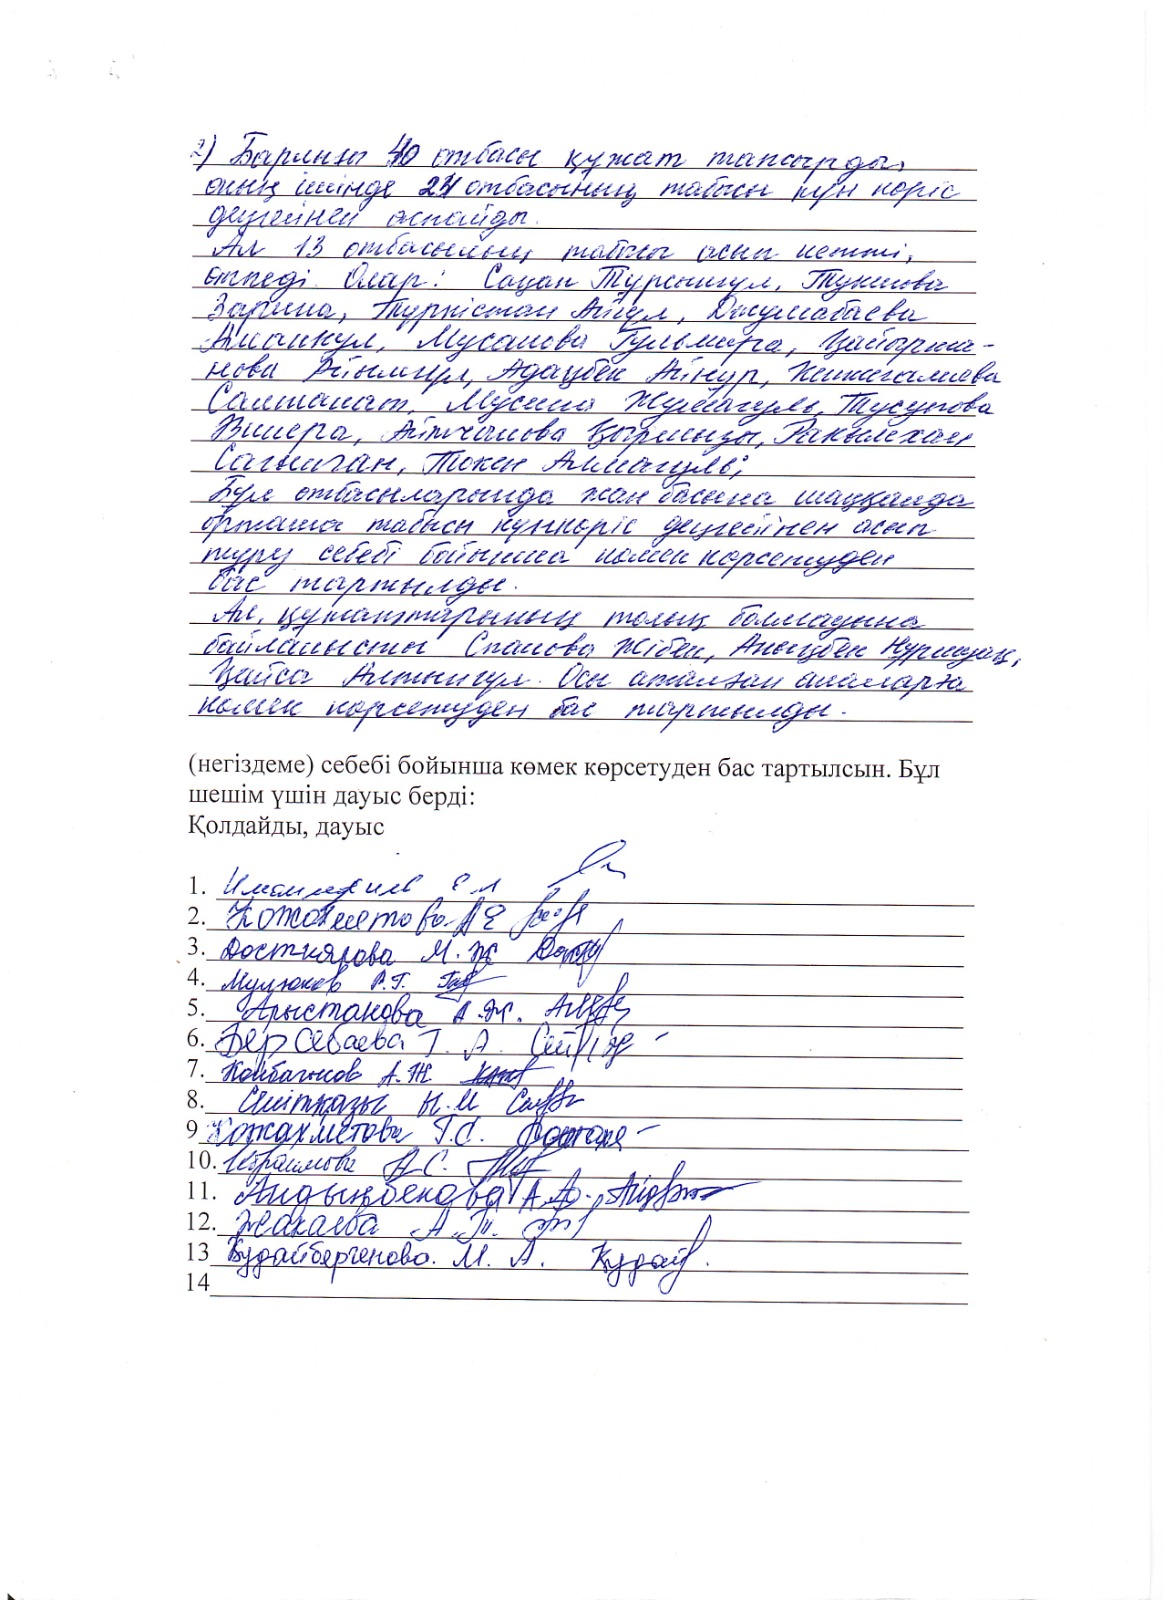 2) Барлығы 40 отбасы құжат тапсырды,
оның ішінде 24 отбасының табысы күн көріс
деңгейінен аспайды.
Ал 13 отбасының табысы асып кетті,
өтпеді. Олар: Саңан Тұрсынгул,
Зарина, Түркістан Айгул, Джумабаева
Аманкул, Мусанова Гульмира, Қайыржа-
нова Айымгул, Адаңбек Айнур,
Салтанат, Мусина Жұмагуль, Тусупова
Венера, Айтчанова Қырмызы, Рақылехан
Сағниған, Токен Алмагуль;
Бұл отбасыларында жан басына шаққанда
орташа табысы күнкөріс деңгейінен асып
түру себебі бойынша көмек көрсетуден
бас тартылды.
Ал, құжаттарының толық болмауына
байланысты Спанова Жібек,
Қайса Алтынгул. Осы аталған аналарға
көмек көрсетуден бас тартылды.
(негіздеме) себебі бойынша көмек көрсетуден бас тартылсын. Бұл
шешім үшін дауыс берді:
Қолдайды, дауыс
1.
2. Кожахметова А Е
3. Досткярова М. Ж
4. Мулюков Р.Г.
5. Арыстанова А.Ж.
6. Берсебаева Г. А.
7. Койбагинов А.Ж
8. Сейітқазы Н.М
9 Кожахметова Г.С.
10. Ибраимова А.С.
11. Айдыңбекова А.
12. Жакаева А. Т.
13 Құдайбергенова. М. А. Құдай
14